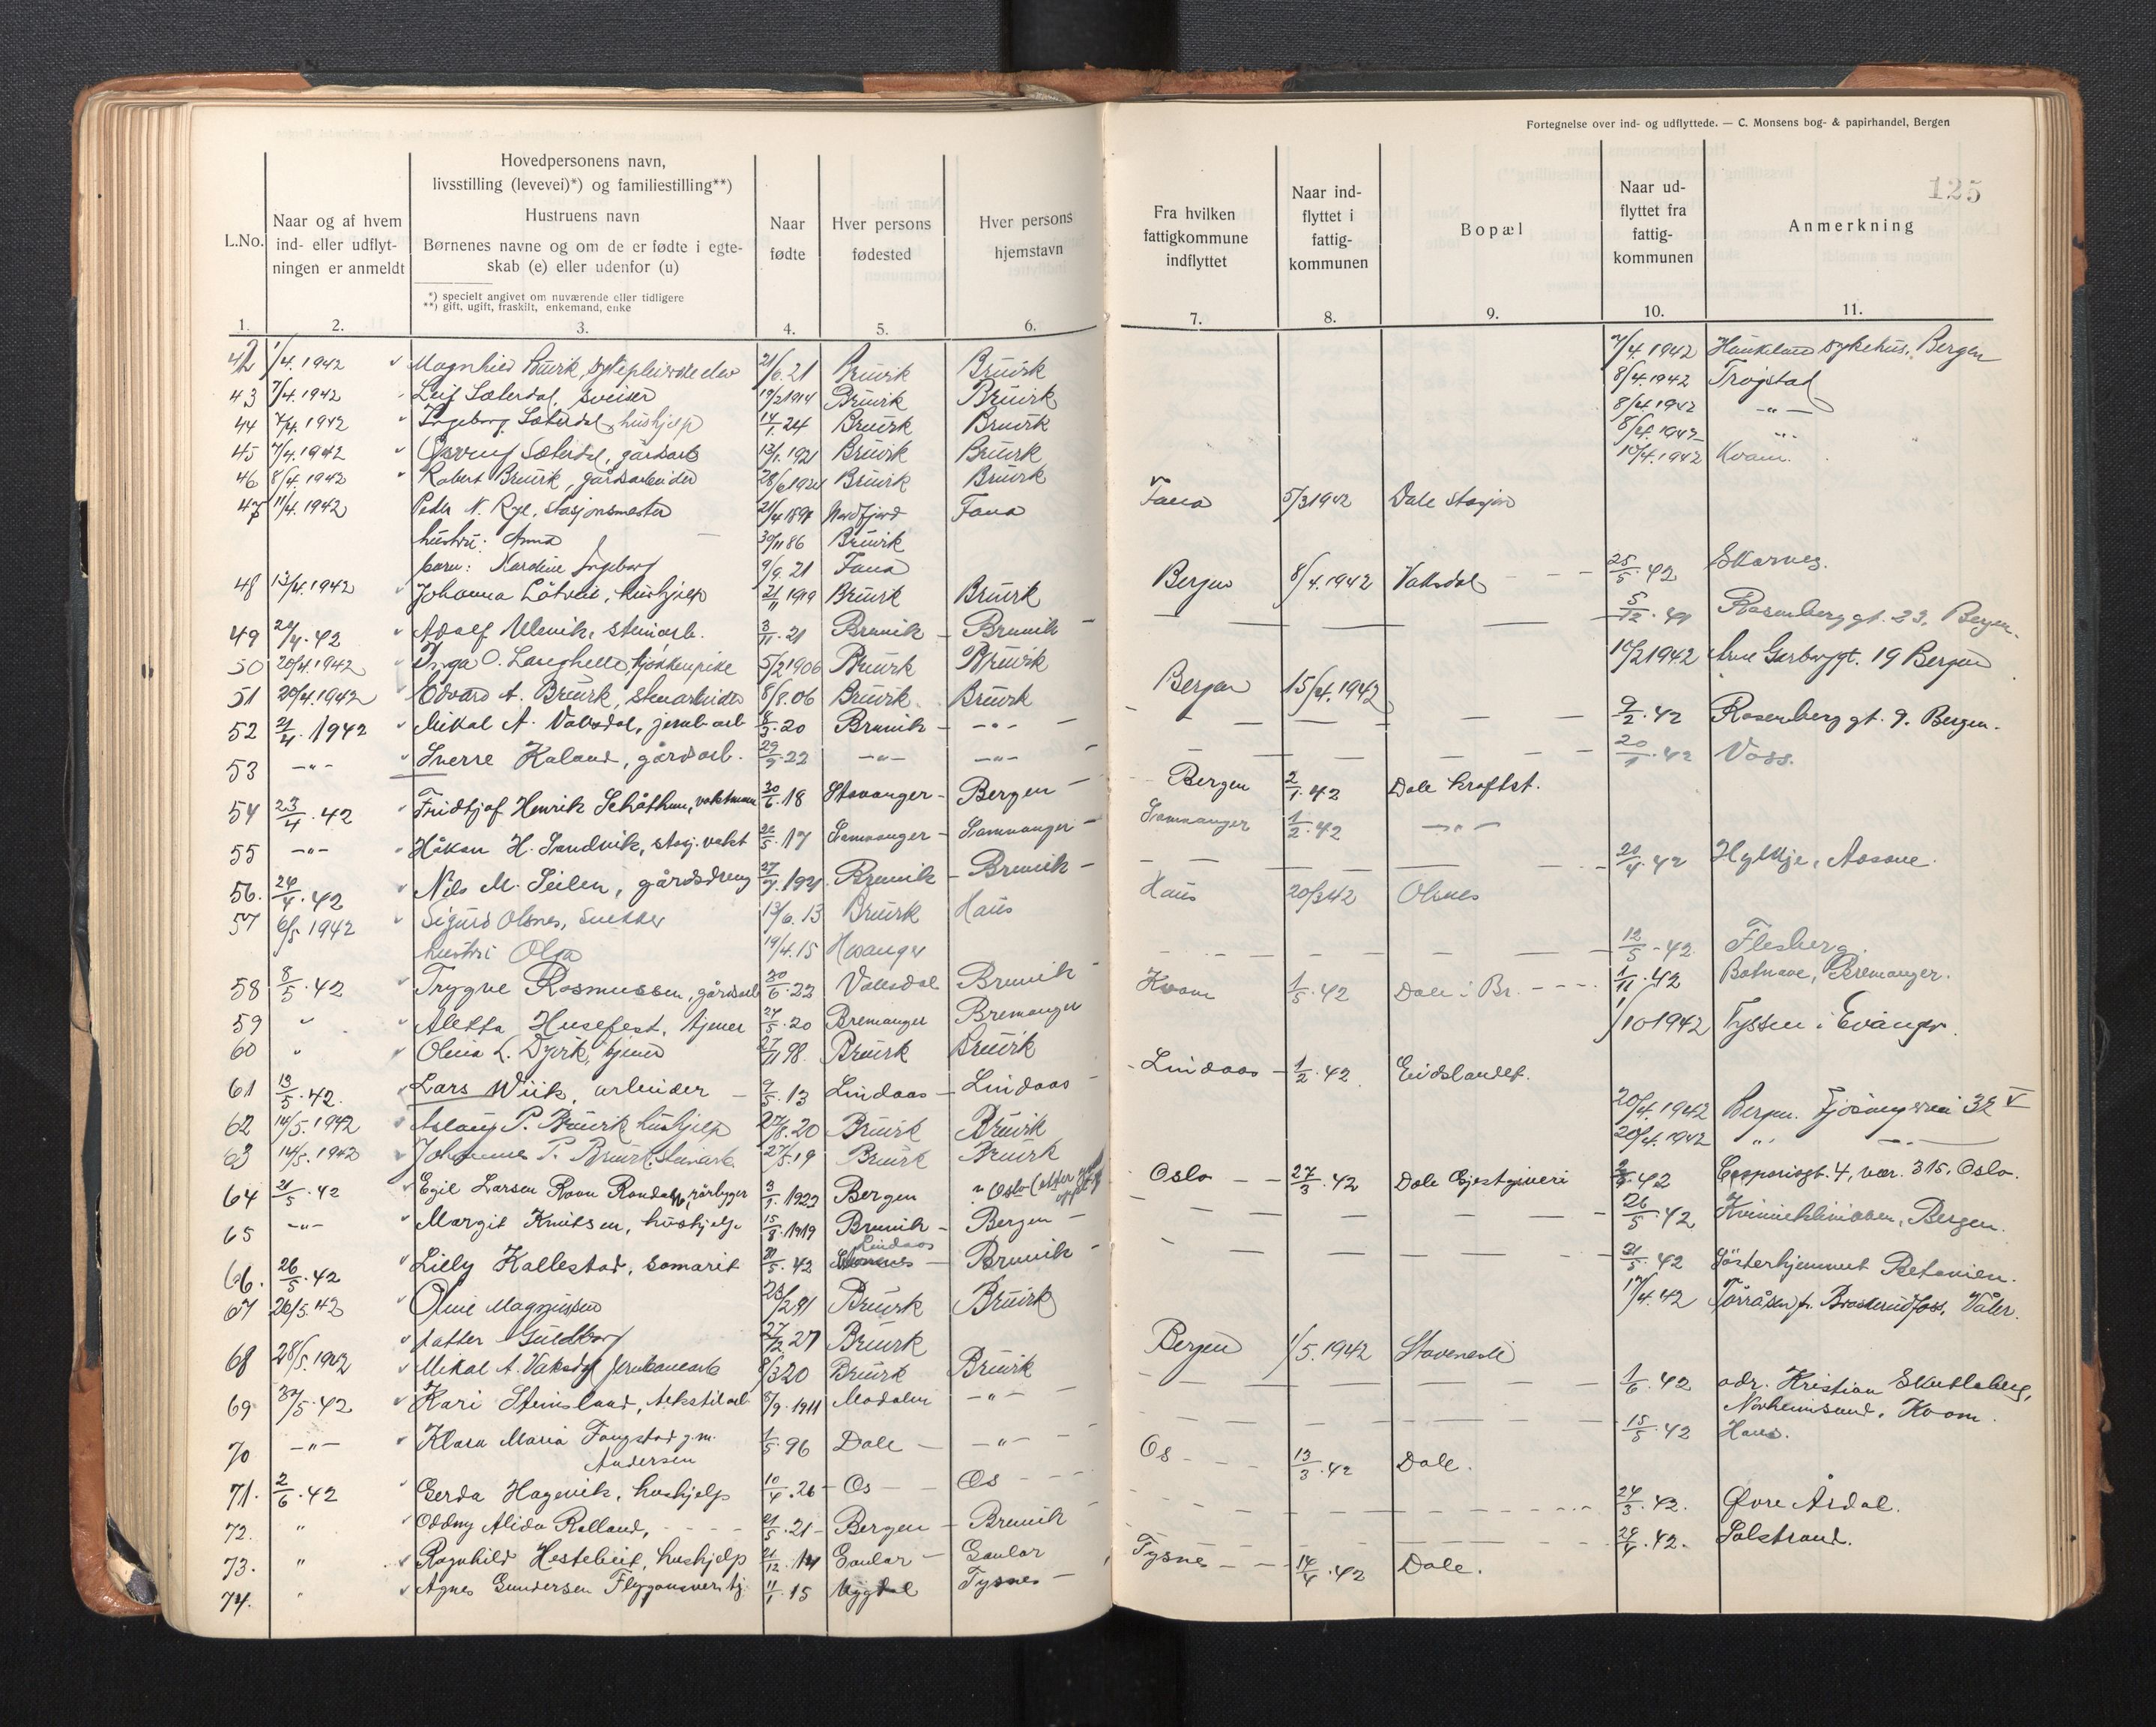 Fortegnelse over ind- og udflyttede. — C. Monsens bog- & papirhandel, Bergen
125
L.No.
Naar og af hvem
ind- eller udflyt-
ningen er anmeldt
Hovedpersonens navn,
livsstilling (levevei)*) og familiestilling**)
Hustruens navn
Børnenes navne og om de er fødte i egte-
skab (e) eller udenfor (u)
*) specielt angivet om nuværende eller tidligere
**) gift, ugift, fraskilt, enkemand, enke
Naar
fødte
Hver persons
fødested
Hver persons
hjemstavn
Fra hvilken
fattigkommune
indflyttet
Naar ind-
flyttet i
fattig-
kommunen
Bopæl
Naar ud-
flyttet fra
fattig-
kommunen
Anmerkning
1. 2. 3. 4. 5. 6. 7. 8. 9. 10. 11.
42 1/4. 1942 Magnhild Bruvik, 21/6. 21 Bruvik Bruvik 7/4. 1942 Haukeland sykehus, Bergen
43 7/4. 1942 Leif Sæterdal, sveiser 19/2 1914 Bruvik Bruvik 8/4. 1942 Trøgstad
44 7/4. 1942 Ingeborg Sæterdal, hushjelp 14/1. 24 Bruvik Bruvik 8/4. 1942 —"—
45 7/4. 1942 Sæterdal, gårdsarb 13/1. 1921 Bruvik Bruvik 8/4. 1942 "
46 8/4. 1942 Robert Bruvik, gårdsarbeider 28/6 1924 Bruvik Bruvik 10/4. 1942 Kvam.
47 11/4. 1942 Peder N. Rye, stasjonsmester 21/4 1891 Nordfjord Fana Fana 5/3 1942 Dale stasjon
hustru: Anna 30/11 86 Bruvik
barn: Karoline Ingeborg 9/9. 21 Fana
48 13/4. 1942 Johanna Låtveit, hushjelp 21/11 1919 Bruvik Bruvik Bergen 8/4. 1942 Vaksdal 25/5. 42 Skarnes.
49 20/4. 42 Adolf Ulevik, steinarb. 3/11. 21 Bruvik Bruvik 5/12. 41 Rosenberg gt. 23. Bergen.
50 20/4 1942 Inga O. Langhelle, kjøkkenpike 5/2 1906 Bruvik Bruvik 10/2 1942 Arne Garborggt. 19 Bergen
51 20/4. 1942 Edvard A. Bruvik, stenarbeider 8/8. 06 Bruvik Bruvik Bergen 15/4. 1942
52 21/4. 1942 Mikal A. Vaksdal, jernb. arb 8/3. 20 Bruvik —"— 9/2. 42 Rosenberg gt. 9. Bergen.
53 —"— Sverre Kaland, gårdsarb. 29/9. 22 —"— —"— 20/1. 42 Voss.
54 23/4. 42 Fridtjof Henrik Schåthun, vaktmann 30/6. 18 Stavanger Bergen Bergen 2/1. 42 Dale kraftst.
55 —"— Håkon H. Sandvik, stasj. vakt 26/5. 17 Samnanger Samnanger Samnanger 1/2. 42 —"—
56. 24/4. 42 Nils M. Seilen, gårdsdreng 27/7. 1921 Bruvik Bruvik 20/4. 42 Hylkje, Aasane.
57 6/5 1942 Sigurd Olsnes, snekker 13/6. 13 Bruvik Haus Haus 20/3 42 Olsnes
hustru Olga 19/4. 15
58 8/5. 42 Trygve Rasmussen, gårdsarb 30/6. 22 Vaksdal Bruvik 12/5. 42. Flesberg.
59 " Aletta Husefest, tjener 24/5. 20 Bremanger Bremanger Kvam 1/5. 42 Dale i Br. 1/11. 42 Botnane, Bremanger.
60 " Olina L. Dyvik, tjener 27/11 98. Bruvik Bruvik 1/10 1942 Tyssen i Evanger.
61 13/5. 42. Lars Wiik, arbeider 9/5. 13 Lindaas Lindaas Lindaas 1/2. 42 Eidslandet.
62 14/5. 1942 Aslaug P. Bruvik hushjelp 27/8. 20 Bruvik Bruvik 20/4. 1942 Bergen. 32 V
63 14/5. 1942 Johannes P. Bruvik, stenarb. 27/5. 19 Bruvik Bruvik 20/4. 1942 "
64 21/5. 42 Egil Larsen rørlegger 3/1. 1922 Bergen Oslo Oslo 27/3. 42 Dale Gjestgiveri 42 4, vær. 315, Oslo.
65 —"— Margit Knutsen, hushjelp 15/8. 1919 Bruvik Bergen 26/5. 42 Kvinneklinikken, Bergen.
66. 26/5. 42 Lilly Kallestad, samarit 21/5. 42 Lindaas Bruvik 31/5. 42 Søsterhjemmet Betanien.
67 26/5. 42 Oline Magnussen 23/2 91 Bruvik Bruvik 17/4. 42 Våler.
datter Guldborg 27/12 27 Bruvik
68 28/5. 1942 Mikal A. Vaksdal Jernbanearb 8/3 20 Bruvik Bruvik Bergen 1/5. 1942 Stavenesli
69 30/5. 42 Kari Steinsland, tekstilarb. 8/9. 1911 Modalen —"— 1/6. 42 adr. Kristian Skutlaberg,
Norheimsund, Kvam.
70 —"— Klara Maria Fangstad g.m. 1/5. 96 Dale —"— 15/5. 42 Haus.
Andersen
71. 2/6. 42 Gerda Hagevik, hushjelp 10/4. 26 Os Os Os 13/3. 42 Dale.
72. " Oddny Alida Rolland, 21/5. 21 Bergen Bruvik 24/3. 42. Øvre Årdal.
73. " Ragnhild Hesteleit, hushjelp 21/12. 14 Gaular Gaular 28/4. 42. Solstrand.
74. " Agnes Gundersen Flygansvær tj. 11/1. 15 Tysnes Tysnes 14/4. 42 Dale.